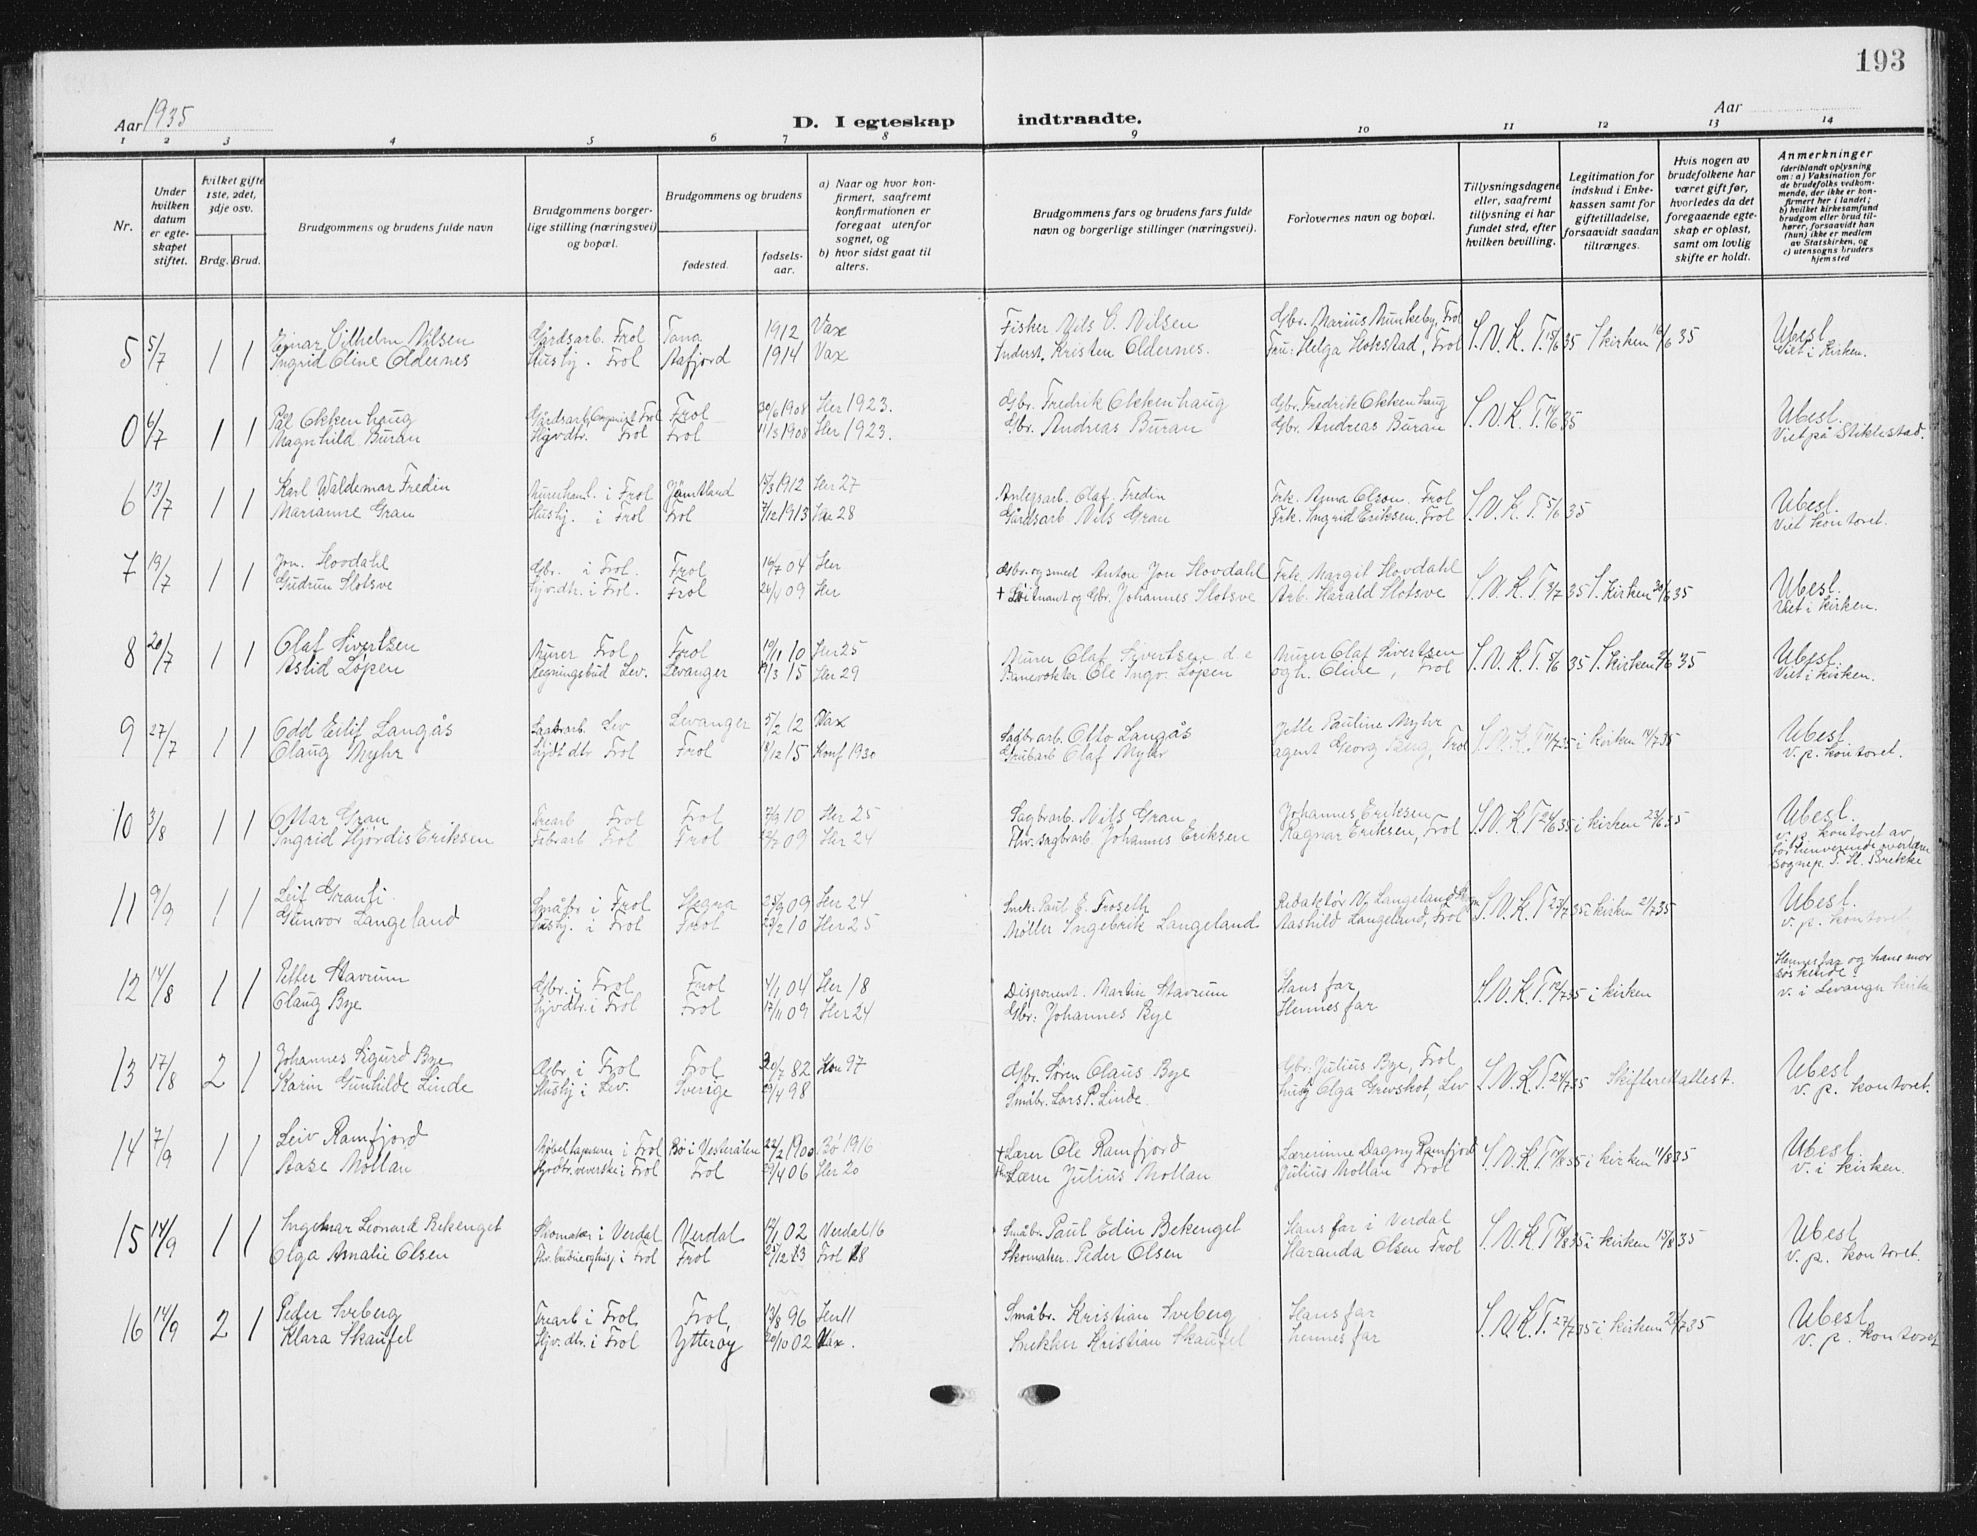 193
Aar 1935
D. I egteskap indtraadte.
Aar
1 2 3 4 5 6 7 8 9 10 11 12 13 14
Nr.
Under hvilken datum er egteskapet stiftet.
Hvilket gifte 1ste, 2det, 3dje osv.
Brdg. Brud.
Brudgommens og brudens fulde navn
Brudgommens borgerlige stilling (næringsvei) og bopæl.
Brudgommens og brudens
fødested.
fødselsaar.
a) Naar og hvor konfirmert, saafremt konfirmationen er foregaat utenfor sognet, og
b) hvor sidst gaat til alters.
Brudgommens fars og brudens fars fulde navn og borgerlige stillinger (næringsvei).
Forlovernes navn og bopæl.
Tillysningsdagene eller, saafremt tillysning ei har fundet sted, efter hvilken bevilling.
Legitimation for indskud i Enkekassen samt for giftetilladelse, forsaavidt saadan tiltrænges.
Hvis nogen av brudefolkene har været gift før, hvorledes da det foregaaende egteskap er opløst, samt om lovlig skifte er holdt.
Anmerkninger
(deriblandt oplysning om: a) Vaksination for de brudefolks vedkommende, der ikke er konfirmert her i landet; b) hvilket kirkesamfund brudgom eller brud tilhører, forsaavidt han (hun) ikke er medlem av Statskirken, og c) utensogns bruders hjemsted
5 5/7 1 1 Einar Vilhelm Nilsen Gårdsarb. Frol Tana 1912 Vax Fisker Nils Nilsen Gbr. Marius Munkeby, Frol S.N.K.T. 35 I kirken 35 Ubesl.
Ingrid Eline Oldernes Husbj. Frol 1914 Vax Inderst. Kristen Oldernes. Fru: Helga Hokstad, Frol Viet i kirken.
0 6/7 1 1 Pål Okkenhaug Gårdsarb. Frol Frol 30/6 1908 Her 1923. Gbr. Fredrik Okkenhaug Gbr. Fredrik Okkenhaug S.N.K.T. 35 Ubesl.
Magnhild Buran Frol Frol 11/3 1908 Her 1923. Gbr. Andreas Buran Gbr. Andreas Buran Viet på Stiklestad.
6 13/7 1 1 Karl Waldemar Fredin i Frol Jämtland 1912 Her 27 Anlegsarb. Olaf Fredin Frk. Anna Olson. Frol S.N.K.T. 5/6 35 Ubesl.
Marianne Gran Husbj. i Frol Frol 1913 28 Gårdsarb Nils Gran Frk. Ingrid Eriksen. Frol Viet kontoret.
7 19/7 1 1 Jon. Hovdahl Gbr. i Frol. Frol 04 Her Gbr. og smed Anton Jon Hovdahl Frk. Margit Hovdahl S.N.K.T. 35 I. kirken 35 Ubesl.
Gudrun Slotsve i Frol. Frol 26/4 09 Her + Løitnant og Gbr. Johannes Slotsve Arb. Harald Slotsve Viet i kirken.
8 20/7 1 1 Olaf Sivertsen Murer Frol Frol 19/1 10 Her 25 Murer Olaf Sivertsen d.e. Murer Olaf Sivertsen S.N.K.T. 35 I. kirken 35 Ubesl.
Astid Lopen Regningsbud Lev. Levanger 15 Her 29 Banevokter Ole Ingv. Lopen og h. Oline, Frol Viet i kirken.
9 27/7 1 1 Odd Eilif Langås Lev Levanger 5/2 12 Vax Sagbr arb. Otto Langås Jette Pauline Myhr S.N.K.T. 35 i kirken 35 Ubesl.
Olaug Myhr Frol Frol 15 Konf 1930 Grubarb Olaf Myhr agent Georg Frol v. p. kontoret.
10 3/8 1 1 Ottar Gran Trearb Frol Frol 10 Her 25 Sagbrarb. Nils Gran Johannes Eriksen S.N.K.T. 35 i kirken 23/6 35 Ubesl.
Ingrid Hjørdis Eriksen Fabrarb Frol Frol 09 Her 24 Fhv. sagbrarb Johannes Eriksen Ragnar Eriksen, Frol v. p. kontoret av
sognep. Brekke
11 9/9 1 1 Leif Granli Småbr i Frol Hegra 25/9 09 Her 24 Snek. Paul E. Froseth Redaktør N. Langeland S.N.K.T. 35 i kirken 21/7 35 Ubesl.
Gunvor Langeland Husbj. i Frol Frol 10 Her 25 Møller Ingebrik Langeland Aashild Langeland, Frol v. p. kontoret
12 14/8 1 1 Petter Stavrum Gbr. i Frol Frol 4/1 04 Her 18 Disponent. Martin Stavrum Hans far S.N.K.T. 35 i kirken Hennes far og hans mor søskende.
Olaug Bye i Frol Frol 17/11 09 Her 24 Gbr: Johannes Bye Hennes far v. i Levanger kirke
13 17/8 2 1 Johannes Sigurd Bye Gbr. i Frol Frol 82 97 Gbr. Søren Claus Bye Gbr. Julius Bye, Frol S.N.K.T. 35 Skifterettattest. Ubesl
Karin Gunhilde Linde Husbj i Lev. Sverige 98 Småbr. Lars P. Linde. Olga Grevskot, Lev v. p. kontoret.
14 7/9 1 1 Leiv Ramfjord i Frol Bø i Vesterålen 1900 Bø 1916 + Lærer Ole Ramfjord Lærerinne Dagny Ramfjord S.N.K.T. 35 i kirken 11/8 35 Ubesl
Aase Mollan i Frol Frol 29/4 06 Her 20 Lærer Julius Mollan Julius Mollan Frol v. i kirken.
15 14/9 1 1 Ingemar Leonard Bekenget Skomaker i Verdal Verdal 02 Verdal 16 Småbr. Paul Edin Bekenget Hans far i Verdal S.N.K.T. 35 i kirken 15/8 35 Ubesl
Olga Amalie Olsen i Frol Frol 13 Frol 28 Skomaker. Peder Olsen Haranda Olsen Frol v. p. kontoret.
16 14/9 2 1 Peder Sveberg Trearb i Frol, Frol, 13/8 96 Her 11 Småbr. Kristian Sveberg Hans far S.N.K.T. 27/7 35 i kirken 35 Ubesl
Klara Skaufel i Frol Ytterøy 02 Vax. Snekker Kristian Skaufel hennes far v. p. kontoret